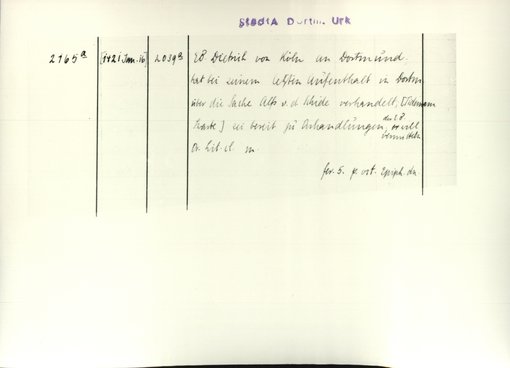 StadtA Dortm. Urk
2765a [1421 Jan. 16] 2039a EB Dietrich von Köln an Dortmund,
hat bei seinem letzten Aufenthalt in Dortm.
über die Sache Alfs v. d. verhandelt,
sei bereit zu Verhandlungen, der EB
er will
vermitteln
Or. Lit. cl. m.
fer. 5. p. oct. Epiph. dn.